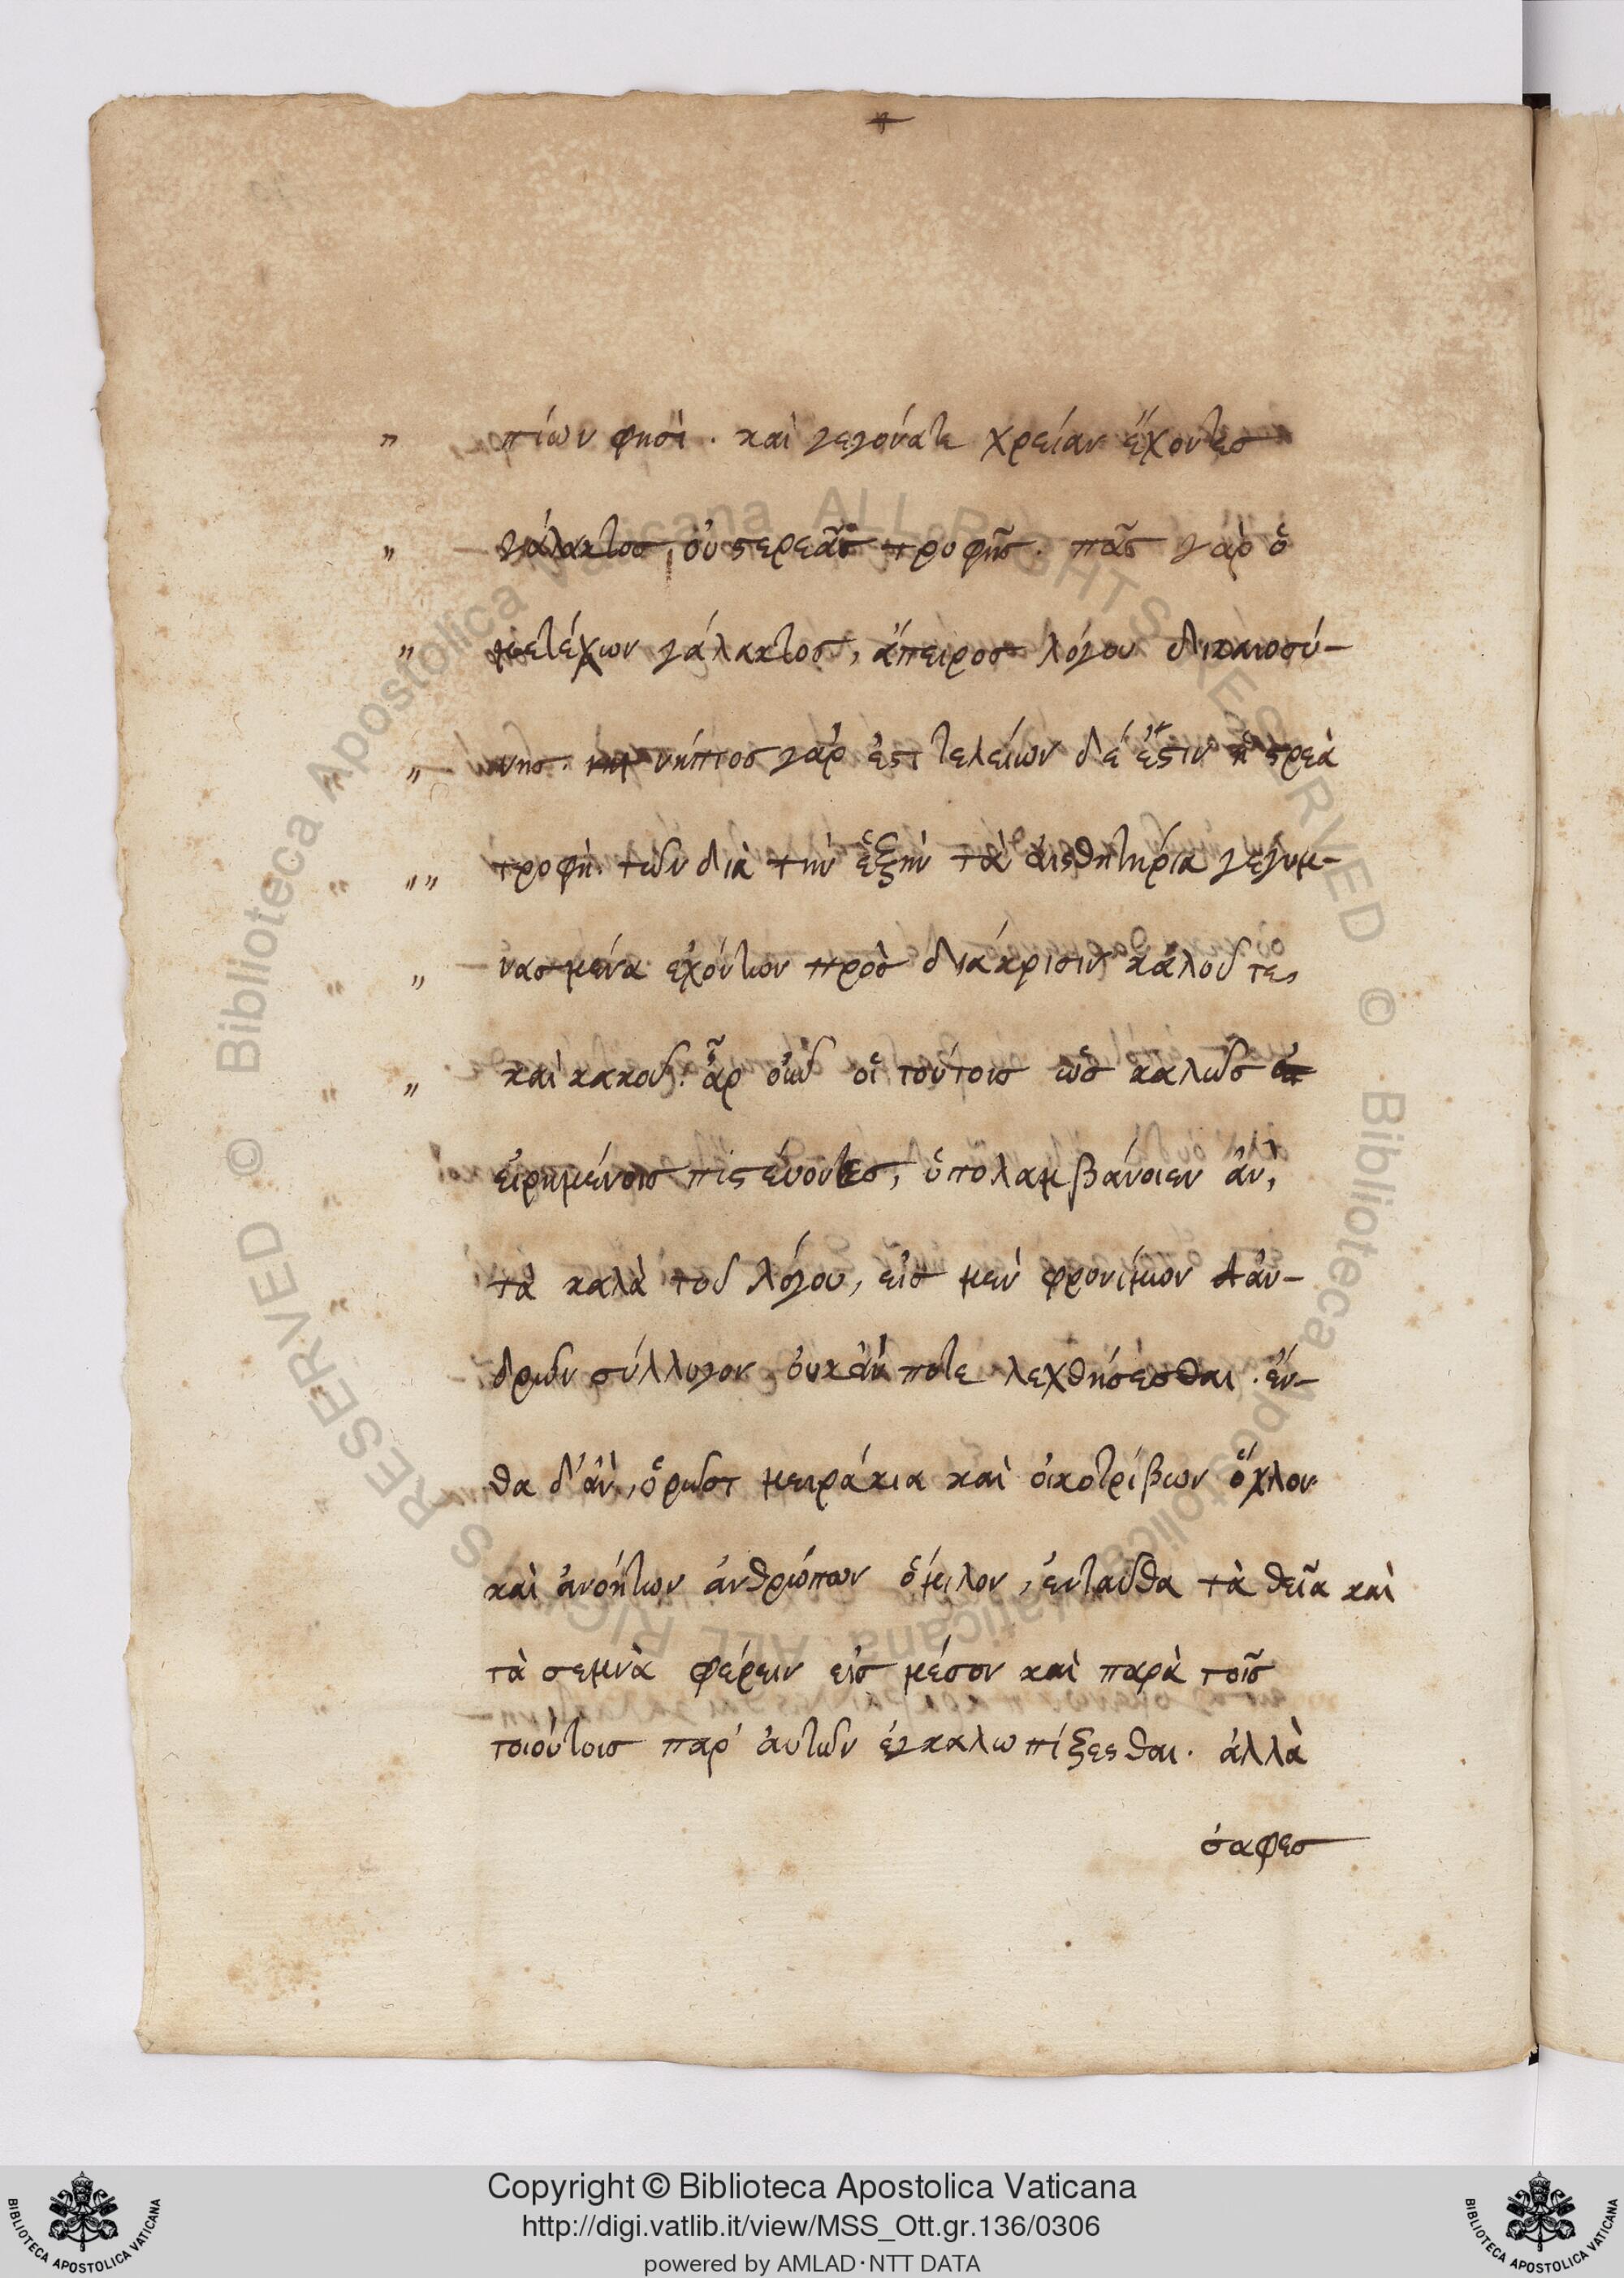 „ πίων φησὶ . καὶ γεγονάτε χρείαν ἔχοντεσ
„ γάλακτοσ, οὐ στερεᾶσ τροφῆσ . πᾶσ γὰρ ὁ
„ μετέχων γάλακτοσ, ἄπειροσ λόγου δικαιοσύ-
„ νησ . νήπιοσ γὰρ ἐστι τελείων δέ ἐστιν ἡ στρεὰ
„ „ τροφὴ . τῶν διὰ τὴν ἑξὴν τὰ ἀισθητηρία γεγυμ-
„ νασμένα ἐχόντων πρὸσ διάκρισιν κάλοῦ τε,
„ καὶ κακοῦ . ἆρ οὖν οἱ τούτοισ ὡσ καλῶσ
εἰρημένοισ πιστέυοντεσ, ὑπολαμβάνοιεν ἀν,
τὰ καλὰ τοῦ λόγου, εἰσ μεν φρονίμων ἀν-
δρῶν σύλλογον ὀυκ ἀν ποτε λεχθήσεσθαι . ἐν-
θα δ' ἀν, ὁρῶσι μειράκια καὶ οἰκοτρίβων ὄχλον
καὶ ἀνοήτων ἀνθρώπων ὅμιλον, ἐνταῦθα τὰ θεῖα καὶ
τὰ σεμνὰ φέρειν εἰσ μέσον καὶ παρὰ τοῖσ
τοιούτοισ παρ' ἀυτῶν ἐγκαλωπίξεσθαι . ἀλλὰ
σαφεσ
© Biblioteca Apostolica Vaticana ALL RIGHTS RESERVED
© Biblioteca Apostolica Vaticana ALL RIGHTS RESERVED
Copyright © Biblioteca Apostolica Vaticana
http://digi.vatlib.it/view/MSS_Ott.gr.136/0306
powered by AMLAD·NTT DATA
BIBLIOTECA APOSTOLICA VATICANA
BIBLIOTECA APOSTOLICA VATICANA